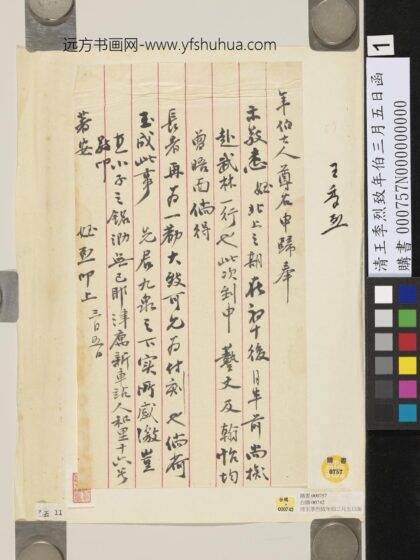 远方书画网-www.yfshuhua.com
1
清王季烈致年伯三月五日函
購書 000757N000000000
王季烈
年伯大人尊右申歸奉
示敬悉 姪北上之期在初十後月半前尚擬
赴武林一行也此次到申 藝文及翰怡均
曾晤而倘得
長者再為一勸大致可允為付刻也倘荷
玉成此事 先君九泉之下實所感激豈
直小子之銘泐無已耶津寓新車站人和里十六號
敬叩
著安 姪烈叩上 三月五日
購書
0757
台購
000742
購書000757
台購00742
清王季烈致年伯三月五日函
五 11